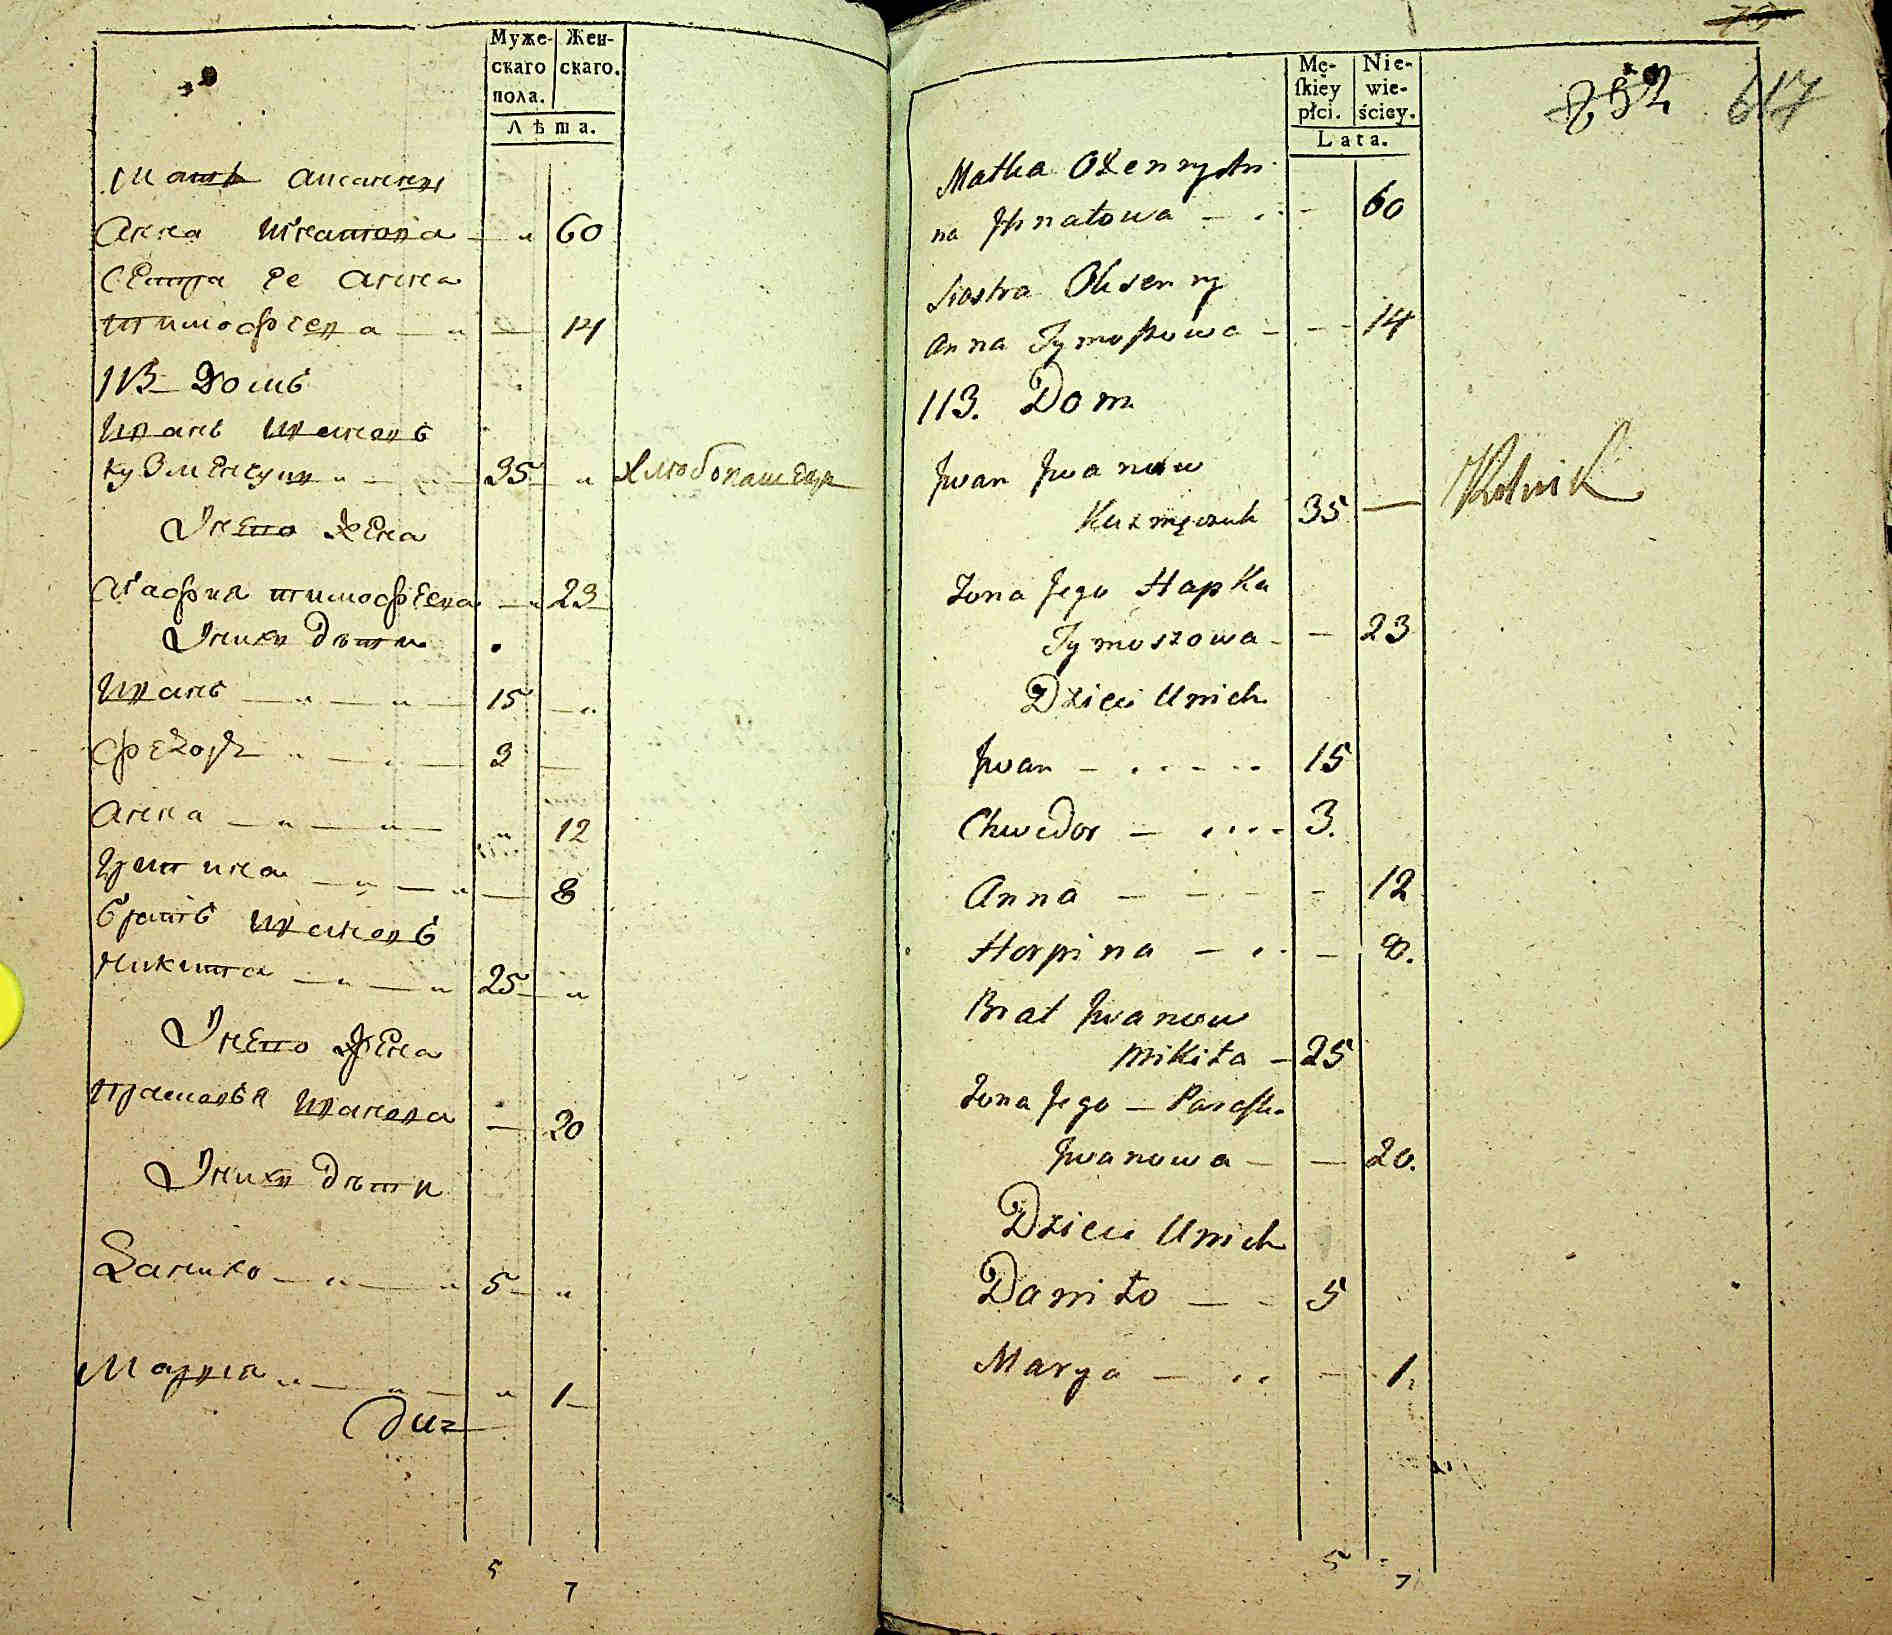 Муже-
скаго
пола.
Жен-
скаго.
Лѣта.
Мать
Анна Игнатова — „ 60
Сестра Ее Анна
Тимофеева — „ — 14
113 Домъ
Иванъ Ивановъ
Кузменчукъ „ — 35 „ Хлебопашецъ
У него Жена
Агафия тимофеева — „ 23
У нихъ дѣти
Иванъ — „ — „ — 15 — „
Федоръ „ — „ — 3 —
Анна — „ — „ — „ 12
— „ — „ — 8
братъ Ивановъ
Никита — „ — „ 25 — „
У него Жена
Ивановна — 20
У нихъ дѣти
Данило — „ — „ 5 — „
Мария „ — „ — „ 1 —
5
7
79
Mę-
skiey
płci.
Nie-
wie-
ściey.
Lata.
752 617
Matka Oxenny An
na Jhnatowa — 60
Siostra Oksenny
Anna Tymoszowa — 14
113. Dom
Jwan Jwanow
Kuzmęczuk 35 — Rolnik
Żona Jego Hapka
Tymoszowa — — 23
Dzieci Unich
Jwan — 15
Chwedor — 3.
Anna — 12
Horpina — 8.
Brat Jwanow
Mikita — 25
Żona Jego — Paraska
Jwanowa — — 20.
Dzieci Unich
Daniło — 5
Marya — 1.
5
7